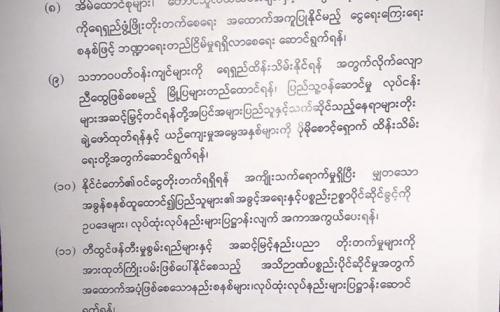 (၈) အိမ်ထောင်စုများ၊
ကိုရေရှည်ဖွံ့ဖြိုးတိုးတက်စေရေး အထောက်အကူပြုနိုင်မည့် ငွေရေးကြေးရေး
စနစ်ဖြင့် ဘဏ္ဍာရေးတည်ငြိမ်မှုရရှိလာစေရေး ဆောင်ရွက်ရန်၊
(၉) သဘာဝပတ်ဝန်းကျင်များကို ရေရှည်ထိန်းသိမ်းနိုင်ရန် အတွက်လိုက်လျော
ညီထွေဖြစ်စေမည့် မြို့ပြများတည်ထောင်ရန်၊ ပြည်သူ့ဝန်ဆောင်မှု လုပ်ငန်း
များအဆင့်မြှင့်တင်ရန်တို့အပြင်အများပြည်သူနှင့်သက်ဆိုင်သည့်နေရာများတိုး
ချဲ့ဖော်ထုတ်ရန်နှင့် ယဉ်ကျေးမှုအမွေအနှစ်များကို ပိုမိုစောင့်ရှောက် ထိန်းသိမ်း
ရေးတို့အတွက်ဆောင်ရွက်ရန်၊
(၁၀) နိုင်ငံတော်၏ဝင်ငွေတိုးတက်ရရှိရန် အကျိုးသက်ရောက်မှုရှိပြီး မျှတသော
အခွန်စနစ်ထူထောင်၍ပြည်သူများ၏အခွင့်အရေးနှင့်ပစ္စည်းဥစ္စာပိုင်ဆိုင်ခွင့်ကို
ဥပဒေများ၊ လုပ်ထုံးလုပ်နည်းများပြဋ္ဌာန်းလျက် အကာအကွယ်ပေးရန်၊
(၁၁) တီထွင်ဖန်တီးမှုစွမ်းရည်များနှင့် အဆင့်မြင့်နည်းပညာ တိုးတက်မှုများကို
အားထုတ်ကြိုးပမ်းဖြစ်ပေါ်နိုင်စေသည့် အသိဉာဏ်ပစ္စည်းပိုင်ဆိုင်မှုအတွက်
အထောက်အပံ့ဖြစ်စေသောနည်းစနစ်များ၊လုပ်ထုံးလုပ်နည်းများပြဋ္ဌာန်းဆောင်
ရွက်ရန်၊